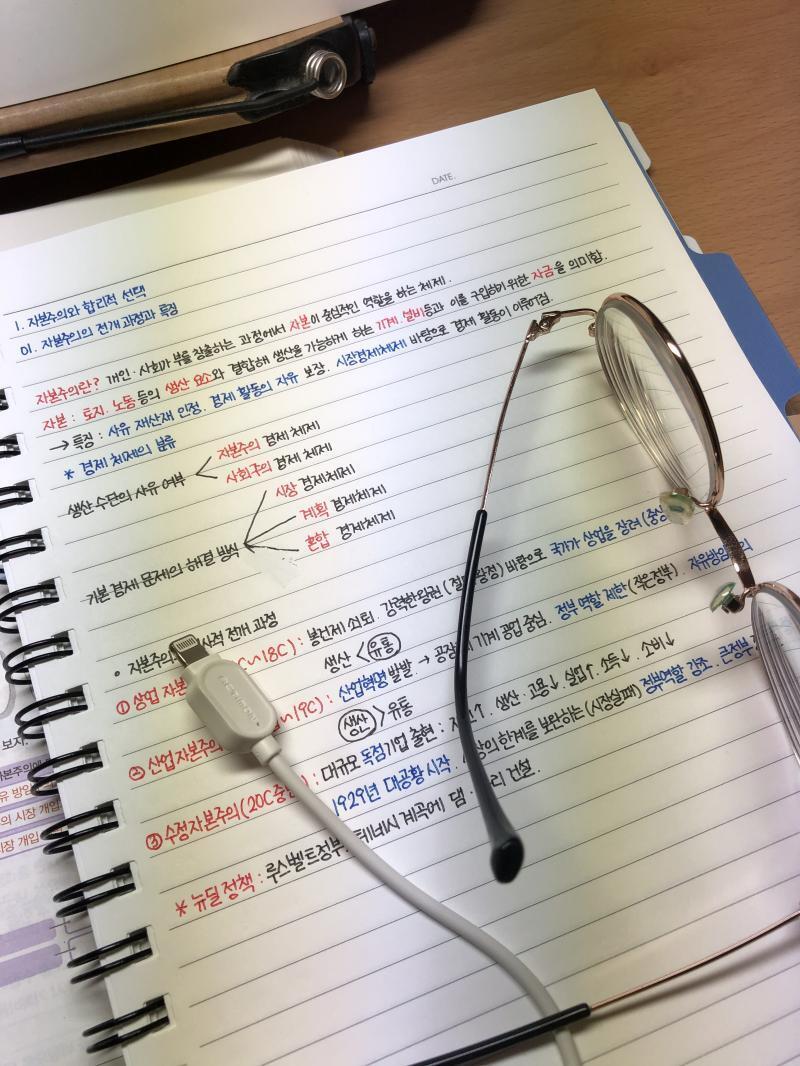 DATE.
1. 자본주의와 합리적 선택
01. 자본주의의 전개 과정과 특징
자본주의란? 개인·사회가 부를 창출하는 과정에서 자본이 중심적인 역할을 하는 체제.
자본 : 토지·노동 등의 생산 요소와 결합해 생산을 가능하게 하는 기계·설비등과 이를 구입하기 위한 자금을 의미함.
→ 특징 : 사유 재산재 인정. 경제 활동의 자유 보장. 시장경제체제 바탕으로 경제 활동이 이루어짐.
* 경제 체제의 분류
생산 수단의 사유 여부 < 자본주의 경제 체제
사회주의 경제 체제
기본 경제 문제의 해결 방식
시장 경제체제
계획 경제체제
혼합 경제체제
• 자본주의 전개 과정
① 상업 자본 C~18C) : 봉건제 쇠퇴. 강력한 왕권 바탕으로 국가가 상업을 장려
생산 < 유통
② 산업 자본주의 ~19C) : 산업혁명 발발. → 공장 기계 공업 중심. 정부 역할 제한(작은정부). 자유방임
생산 > 유통
③ 수정 자본주의 (20C 중 : 대규모 독점기업 출현 : ↑. 생산·고용↓. 실업↑. 소득↓. 소비↓
1929년 대공황 시작. 한계를 보완하는 (시장실패) 정부역할 강조. 큰정부
* 뉴딜 정책 : 루스벨트정부 테네시 계곡에 댐 건설.
보지.
자본주의에
유 방임
의 시장 개입
시장 개입